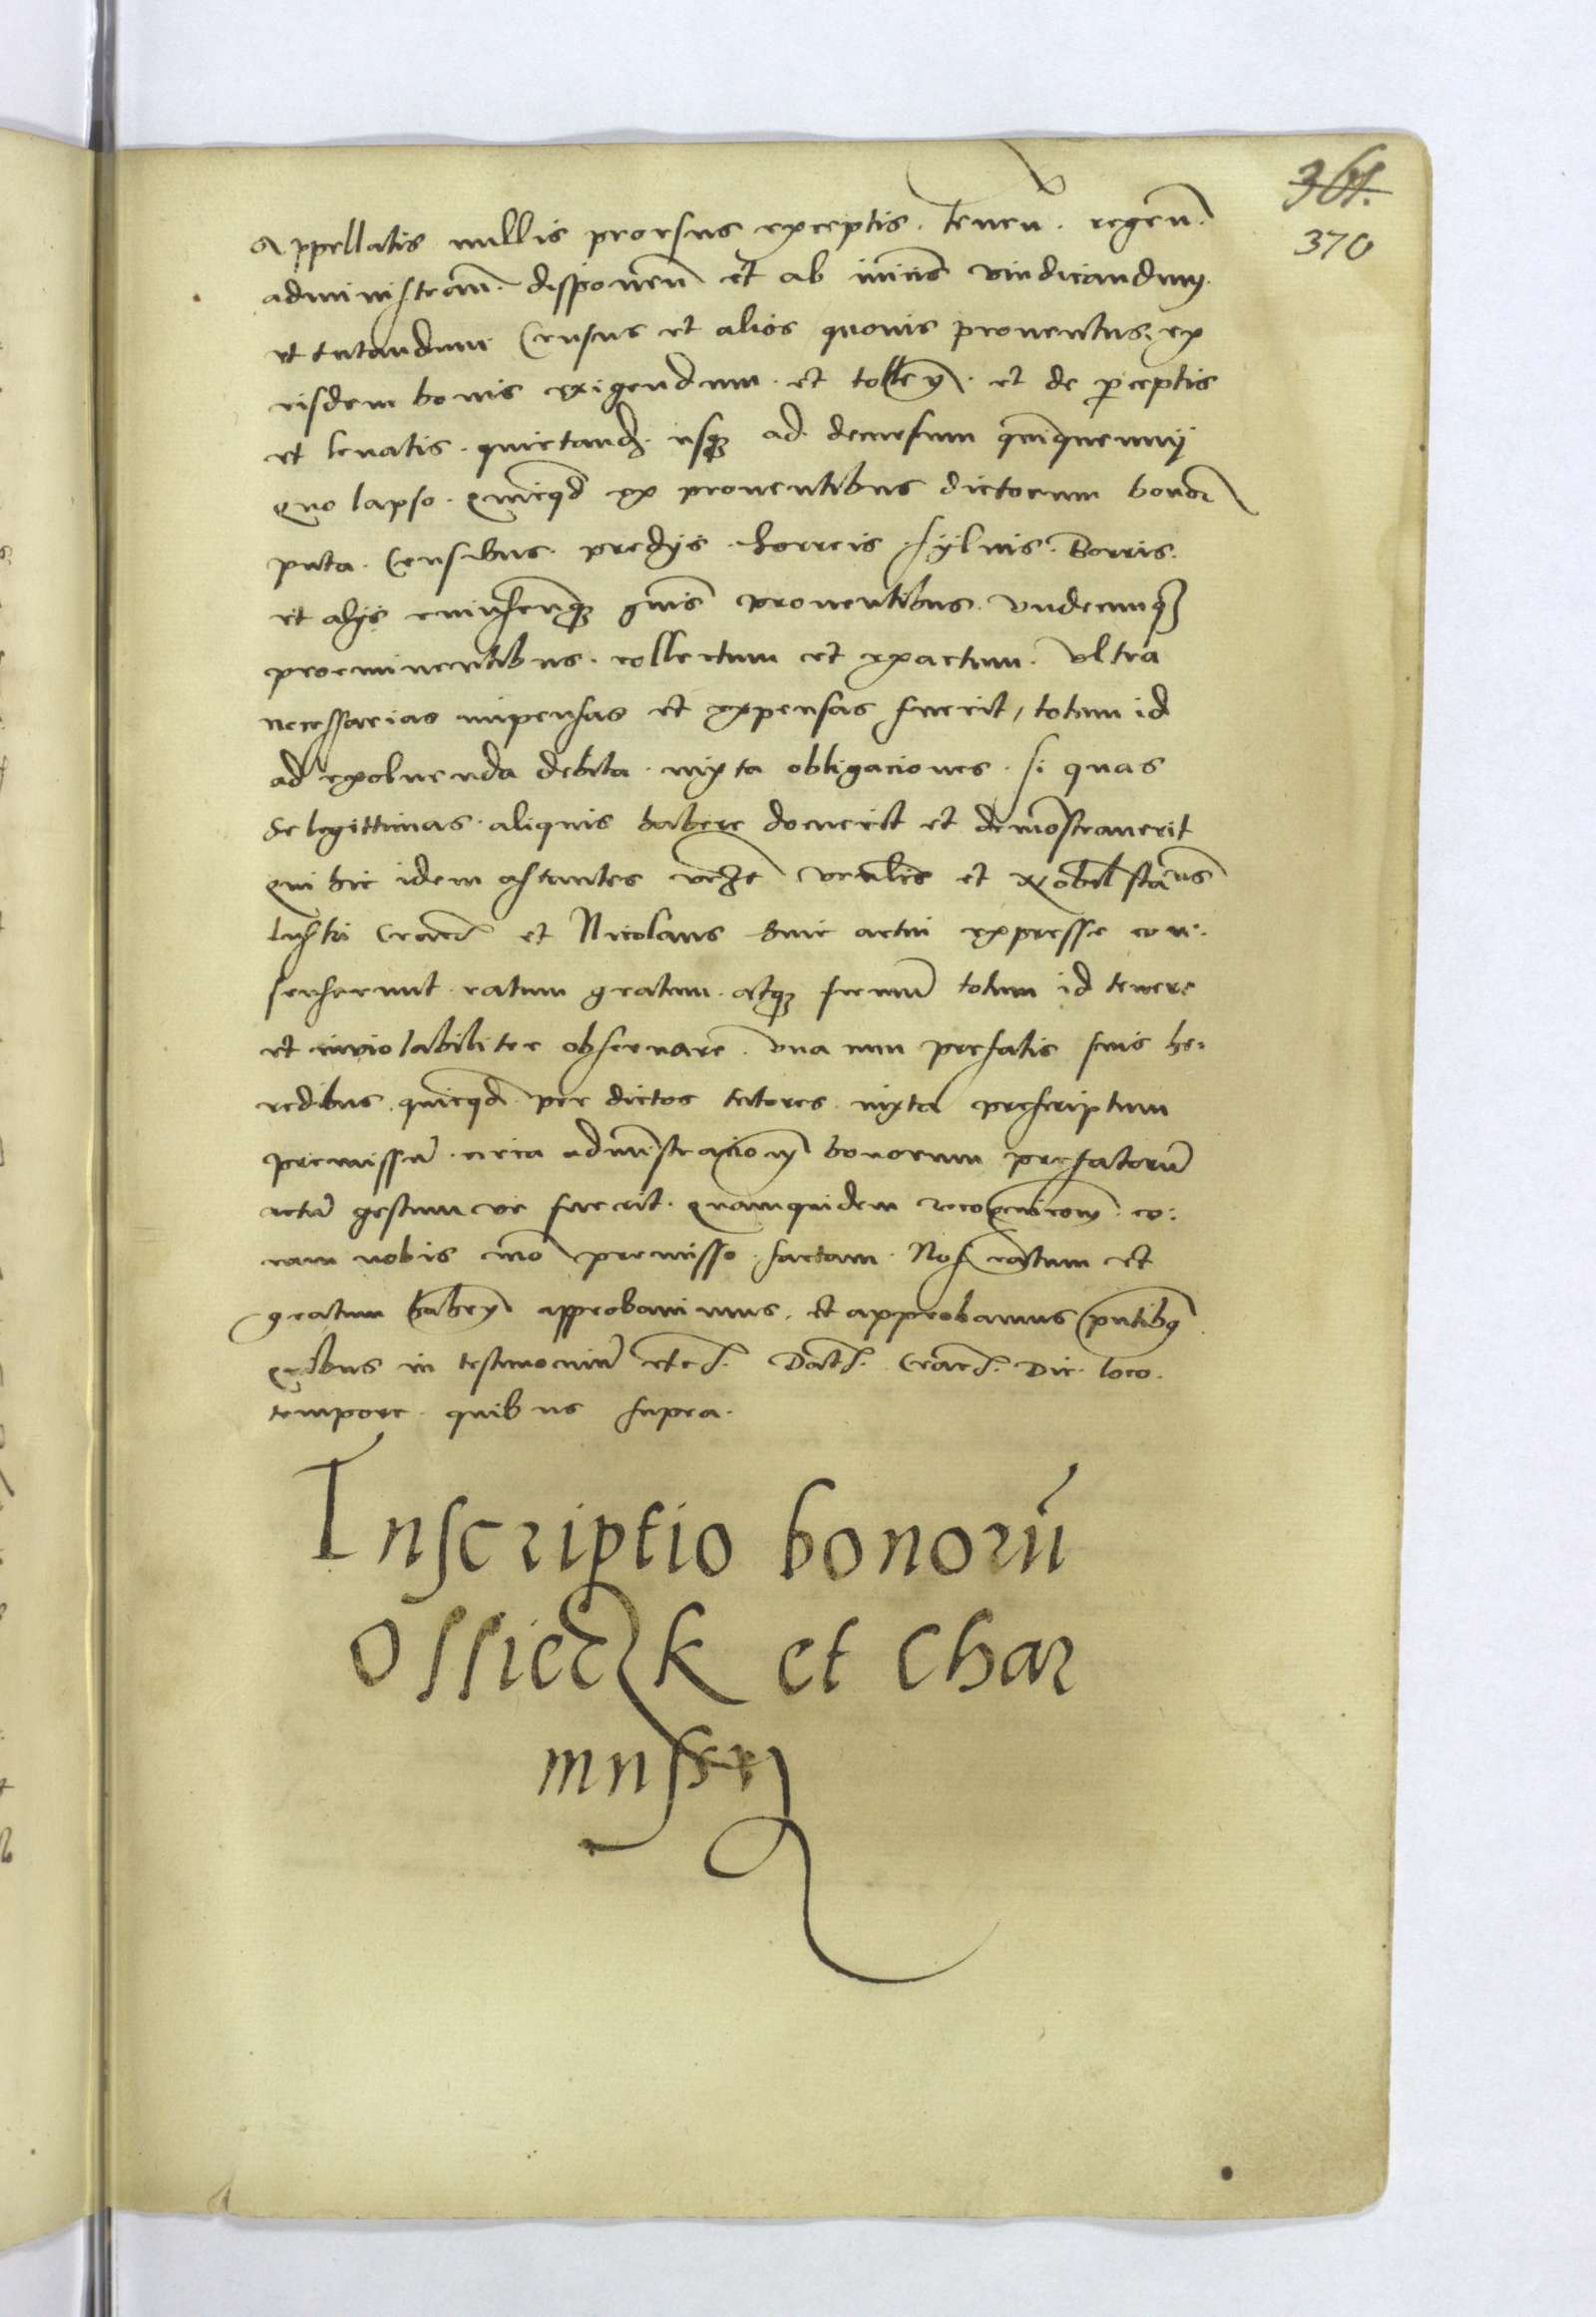 361.
370
Appellatis nullis prorsus exceptis. tenen̄. regen̄.
administran̄. disponen̄ et ab iniuriis vindicandum.
et tutandum Census et alios quovis proventus. ex
eisdem bonis exigendum. et tollen. et de perceptis
et levatis. quietand. usq3 ad decursum quinquennij
quo lapso. quicqd ex proventibus dictorum bonor
puta. Censibus. predijs. horreis. sylvis. Borris.
et alijs cuiuscunq3 gnis proventibus. undecunq3
proeminentibus. collectum et exactum. Ultra
necessarias impensas et expensas fuerit, totum id
ad exolvenda debita. iuxta obligaciones. si quas
se legittimas. aliquis habere docuerit et demōstraverit
Qui hic idem astantes et
et Nicolaus huic actui expresse con:
senserunt. ratum gratum. atq3 firmū totum id tenere
et inviolabiliter observare. una cum prefatis suis he:
redibus. quicqd per dictos tutores. iuxta prescriptum
premissū. circa administracionem bonorum prefatorū
actū gestumve fuerit. Quamquidem recognicionem. co:
ram nobis mō premisso. factam. Nos ratum et
gratum haben approbavimus. et approbamus pntibus
Quibus in testimoniū etc. Dat. Crac. Die. loco.
tempore. quibus supra.
Inscriptio bonorū
Ossieczk et Char